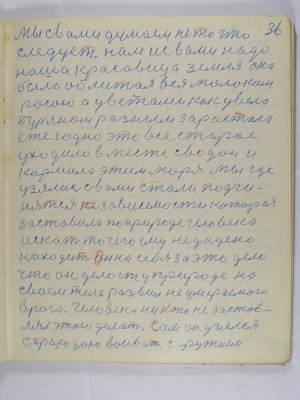 36
Мы с вами думаем не то что
следует нам и с вами надо
наша красавица земля она
была облитая вся молоком
росою а цветами как
разним заростала
ежегодно это все старое
уходило вместе с водой и
кормила этим моря. Мы где
узялис с вами стали подчи-
нятся независемости которая
заставала по природе человека
искат то чего ему не дадено
находит. Он на себя за это дело
что он делост у природе на
своем теле развил не умераемого
врага. Человека никто не застав-
лял этого делат. Сам он узялся
с природою воюват, с оружием